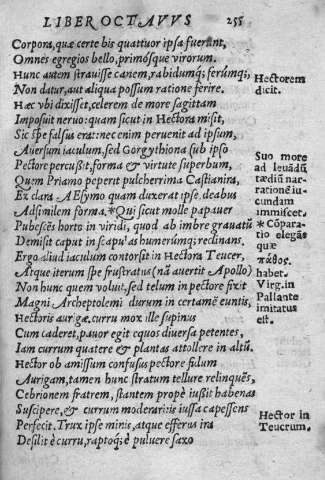 LIBER OCTAVVS 255
Corpora, quæ certe bis quattuor ipsa fuerunt,
Omnes egregios bello, primósque virorum.
Hunc autem strauisse canem, rabidumq; ferúmq;,
Non datur, aut aliqua possum ratione ferire.
Hæc vbi dixisset, celerem de more sagittam
Imposuit neruo: quam sicut in Hectora misit,
Sic spe falsus erat: nec enim peruenit ad ipsum,
Auersum iaculum, sed Gorgythiona sub ipso
Pectore percussit, forma & virtute superbum,
Quem Priamo peperit pulcherrima Castianira,
Ex clara Aesymo quam duxerat ipse, deabus
Adsimilem forma. *Qui sicut molle papauer
Pubescēs horto in viridi, quod ab imbre grauatū
Demisit caput in scapu'as humerúmq; reclinans.
Ergo aliud iaculum contorsit in Hectora Teucer,
Atque iterum spe frustratus (nā auertit Apollo)
Non hunc quem voluit, sed telum in pectore fixit
Magni Archeptolemi durum in certamē euntis,
Hectoris aurigæ, curru mox ille supinus
Cum caderet, pauor egit equos diuersa petentes,
Iam currum quatere & plantas attollere in altū.
Hector ob amissum confusus pectore fidum
Aurigam, tamen hunc stratum tellure relinquēs,
Cebrionem fratrem, stantem propè iußit habenas
Suscipere, & currum moderantis iussa capessens
Perfecit. Trux ipse minis, atque efferus ira
Desilit è curru, raptoq; è puluere saxo
Hectorem
dicit.
Suo more
ad leuādū
tædiū nar-
rationē iu-
cundam
immiscet.
* Cōparatio
elegās
quæ
πάθος.
habet.
Virg. in
Pallante
imitatus
est.
Hector in
Teucrum.